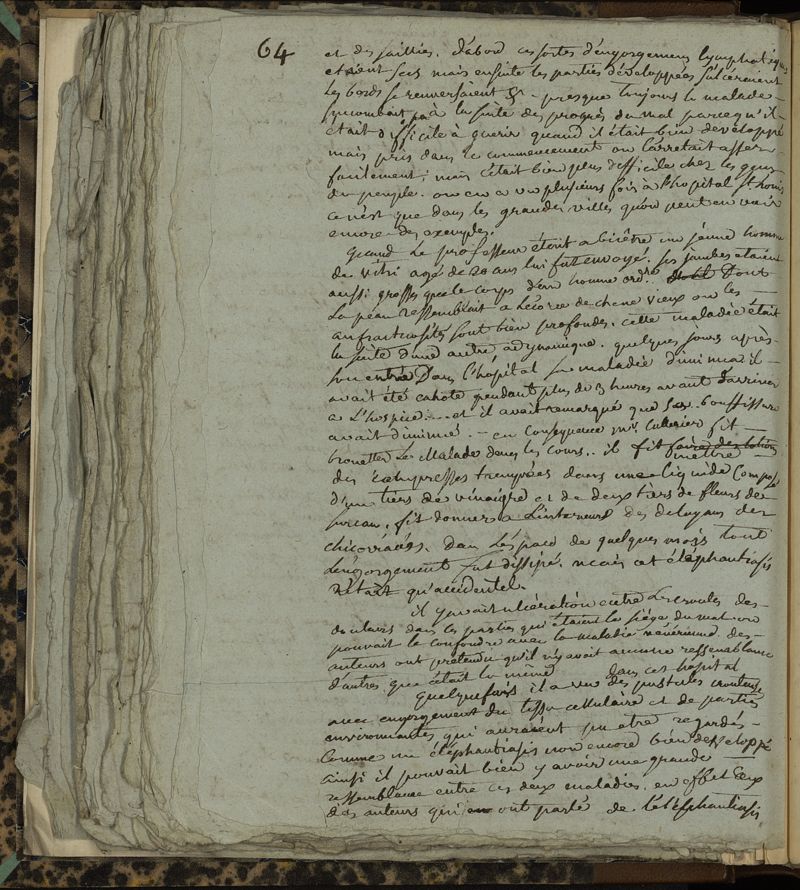 64
et des saillies. d'abord ces sortes d'engorgemens lymphatiques
etaient secs mais ensuite les parties développées s'ulceraient
les bords se renversaient &c - presque toujours le malade -
succombait à la suite des progrès du mal parcequ'il -
était difficile à guerir quand il était bien développé
mais pris dans le commencement on l'arretait assez
facilement; mais c'était bien plus difficile chez les gens
du peuple. on en a vu plusieurs fois à l'hopital St Louis
ce n'est que dans les grandes villes qu'on peut en voir
encore des exemples.
Quand Le professeur était a bicêtre un jeune homme
de vitri agé de 20 ans lui fut envoyé. ses jambes etaient
aussi grosses que le corps d'un homme ordre. Dont
La peau ressemblait a l'écorce de chene vieux ou les -
anfractuosités sont bien profondes. cette maladie était
la suite d'une autre adynamique. quelques jours après
son entrée Dans l'hôpital sa maladie diminua il -
avait été cahoté pendant plus de 3 heures avant d'arriver
a L'hospice.... et il avait remarqué que sa bouffissure
avait diminué. - en consequence mr. Cullerier fit -
brouetter Le Malade dans les cours.. il fit faire des lotions
mettre -
des compresses trempées dans une liquide composé
d'un tiers de vinaigre et de deux tiers de fleurs de
sureau, fit donner a L'interieur des delayans des
chicoracées. Dans L'éspace de quelques mois tout
L'engorgement fut dissipé. mais cet éléphantiasis
n'était qu'accidentel.
il y avait ulcération entre Les croutes des
douleurs dans les parties qui étaient le siége du mal on
pouvait le confondre avec la maladie venerienne des -
auteurs ont prétendu qu'il n'y avait aucune ressemblance
d'autres que c'était la même dans cet hopital
Quelquefois il a vu des pustules crouteuses
avec engorgement du tissu cellulaire et de parties
environnantes qui auraient pu etre regardés -
Comme un éléphantiasis non encore bien développé
ainsi il pouvait bien y avoir une grande -
ressemblance entre ces deux maladies. en effet Ceux
des auteurs qui en ont parlé de L'éléphantiasis